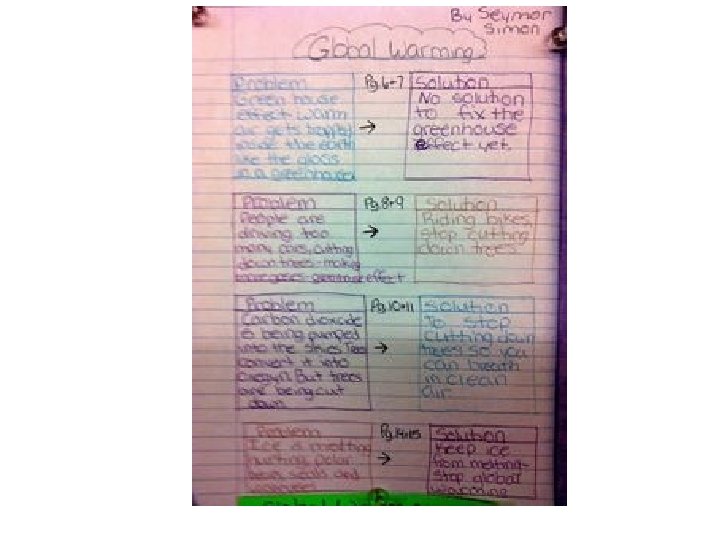 By Seymor
Simon
Global Warming
Problem
Green house
effect warm
air gets trapped
inside the earth
like the glass
in a greenhouse
Pg.6+7
→
Solution
No solution
to fix the
greenhouse
effect yet.
Problem
People are
driving too
many cars, cutting
down trees-making
more gases greenhouse effect
Pg.8+9
→
Solution
Riding bikes,
stop cutting
down trees.
Problem
Carbon dioxcide
is being pumped
into the skies
convert it into
But trees
are being cut
down
Pg.10+11
→
Solution
To stop
cutting down
trees so you
can breath
in clean
air.
Problem
Ice is melting
hurting polar
bears, seals and
Pg.14+15
→
Solution
Keep ice
from melting-
stop global
warming